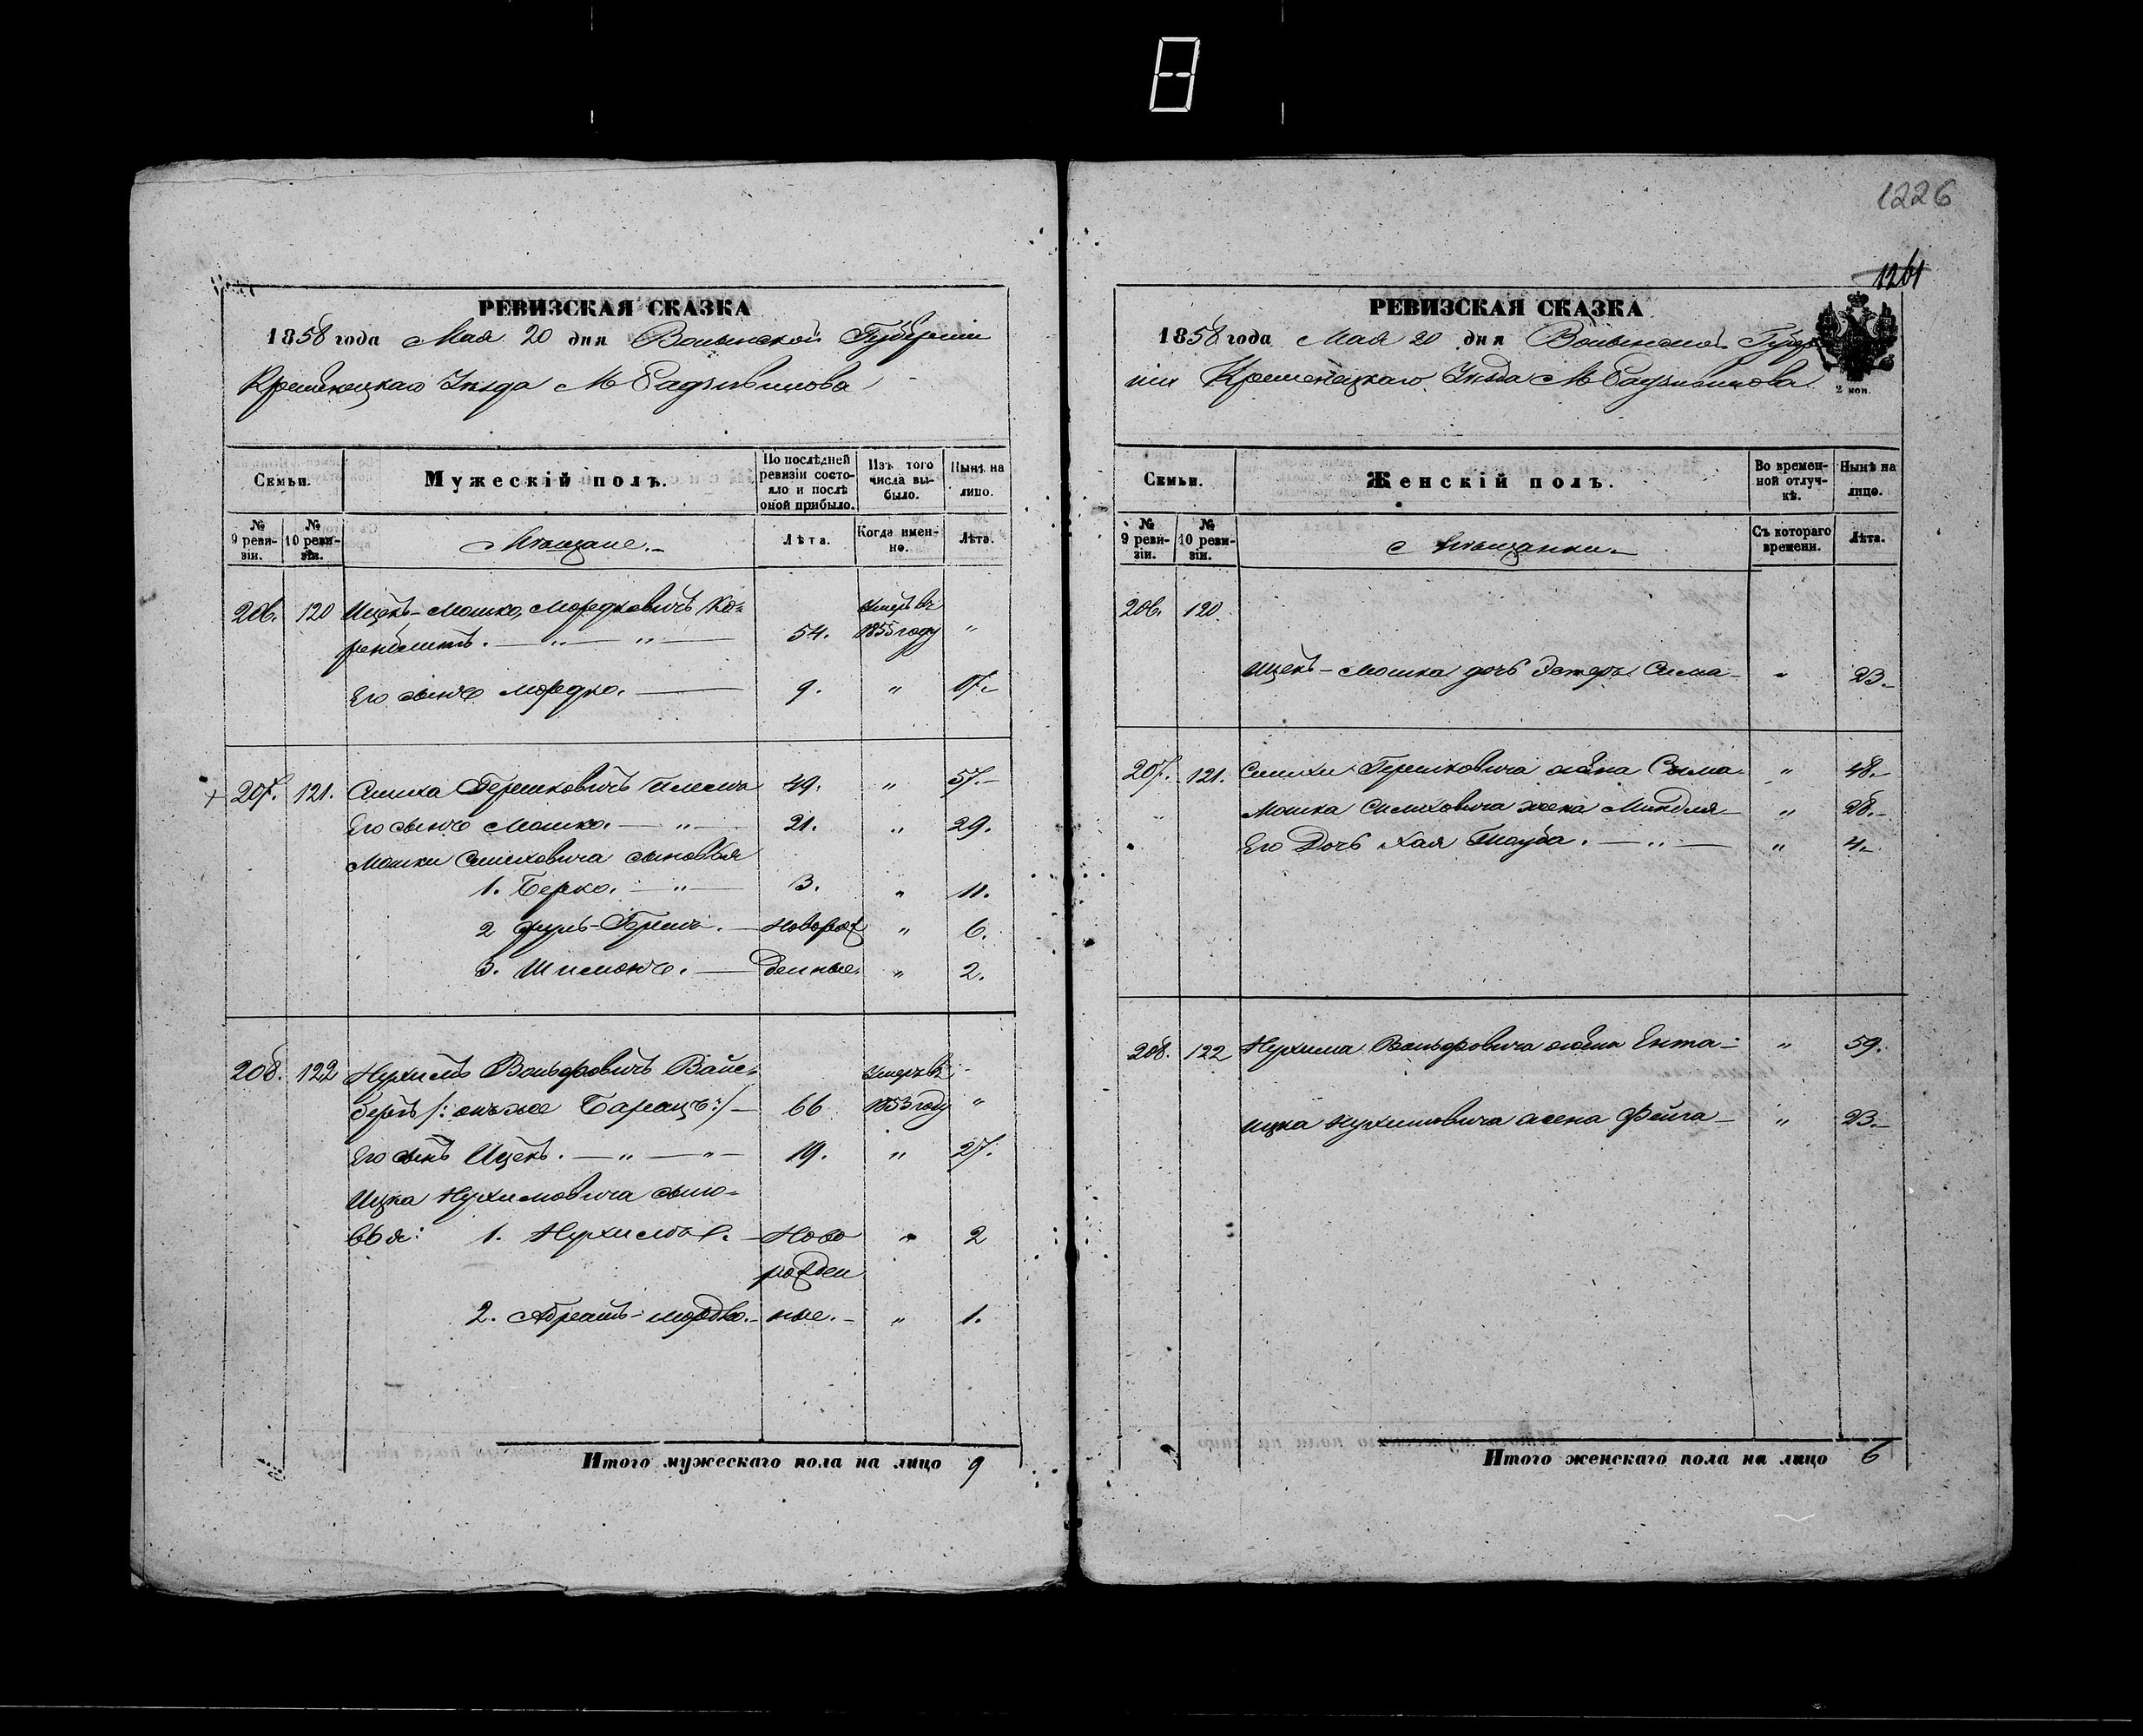 1226
1261
РЕВИЗСКАЯ СКАЗКА
1858 года Мая 20 дня Волынской Губерніи
Кременецкаго Уѣзда М Радзивилова
Семьи.
Мужескій полъ.
По послѣдней ревизіи состояло и послѣ оной прибыло.
Изъ того числа выбыло.
Нынѣ на лицо.
№ 9 ревизіи.
№ 10 ревизіи.
Мѣщане.
Лѣта.
Когда именно.
Лѣта.
206. 120 Ицекъ-Мошко Мордковичъ Ко- умеръ въ
54. 1855 году "
Его сынъ Мордко. 9. " 17.
207. 121. Симха Гершковичъ 49. " 57.
Его сынъ Мошко. " 21. " 29.
Мошки Симховича сыновья
1. Берко. " 3. " 11.
2 Новорож " 6.
3. Шимонъ. денные. " 2.
208. 122 Нухимъ Вольфовичъ Вайс- умеръ въ
бергъ /: онъ же :/ 66 1853 году "
Его сынъ Ицекъ. " " 19. " 27.
Ицка Нухимовича сыно-
вья: 1. Нухимъ. Ново " 2
рожден
2. Абрамъ-Мордко. ные. " 1.
Итого мужескаго пола на лицо 9
РЕВИЗСКАЯ СКАЗКА
1858 года Мая 20 дня Волынской Губер
ніи Кременецкаго Уѣзда М Радзивилова
2 коп.
Семьи.
Женскій полъ.
Во временной отлучкѣ.
Нынѣ на лицо.
№ 9 ревизіи.
№ 10 ревизіи.
Мѣщанки.
Съ котораго времени.
Лѣта.
206. 120.
Ицекъ-Мошка дочь Эстеръ Сима " 23.
207. 121. Симхи Гершковича жена Сима " 48.
Мошка Симховича жена Миндля " 28.
Его Дочь Хая Тауба. " " 4.
208. 122 Нухима Вольфовича жена Ента " 59.
Ицка Нухимовича жена Фейга " 23.
Итого женскаго пола на лицо 6